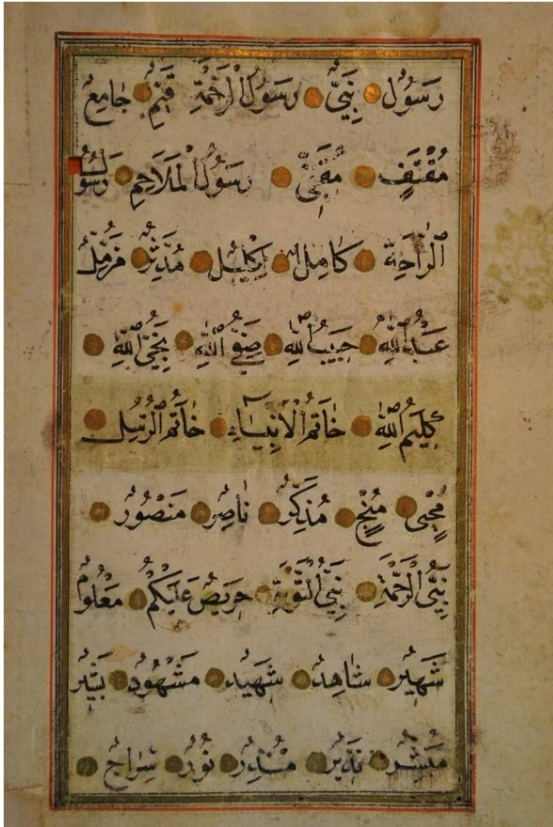 رَسُولٌ نَبِيٌّ رَسُولُ الرَّحْمَةِ قَيِّمٌ جَامِعٌ
مُقْتَفٍ مُقَفًّى رَسُولُ الْمَلَاحِمِ رَسُولُ
الرَّاحَةِ كَامِلٌ إِكْلِيلٌ مُدَّثِّرٌ مُزَّمِّلٌ
عَبْدُ اللهِ حَبِيبُ اللهِ صَفِيُّ اللهِ نَجِيُّ اللهِ
كَلِيمُ اللهِ خَاتَمُ الْأَنْبِيَاءِ خَاتَمُ الرُّسُلِ
مُحْيِي مُنْجٍ مُذَكِّرٌ نَاصِرٌ مَنْصُورٌ
نَبِيُّ الرَّحْمَةِ نَبِيُّ التَّوْبَةِ حَرِيصٌ عَلَيْكُمْ مَعْلُومٌ
شَهِيرٌ شَاهِدٌ شَهِيدٌ مَشْهُودٌ بَشِيرٌ
مُبَشِّرٌ نَذِيرٌ مُنْذِرٌ نُورٌ سِرَاجٌ